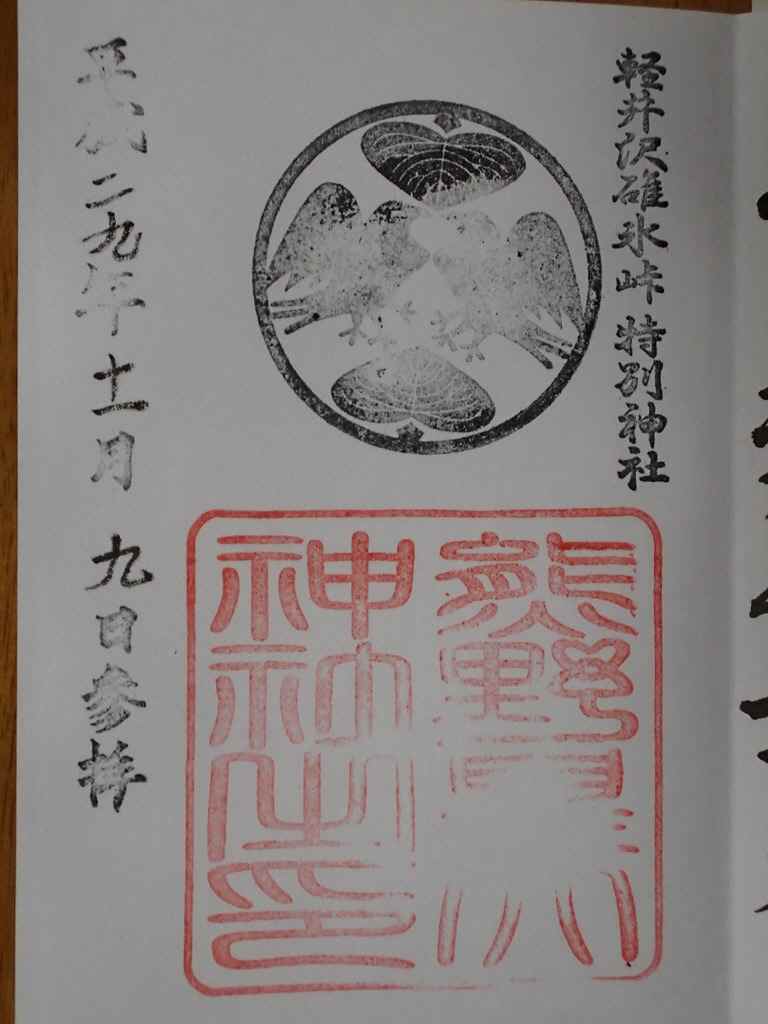 軽井沢碓氷峠 特別神社
熊野
神社之印
平成二九年十一月 九日参拝